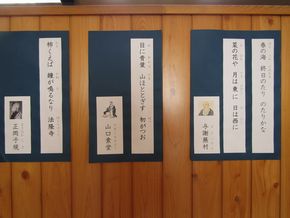 春の海 終日のたり のたりかな
菜の花や 月は東に 日は西に
与謝蕪村
目に青葉 山ほととぎす 初がつお
山口素堂
柿くえば 鐘が鳴るなり 法隆寺
正岡子規